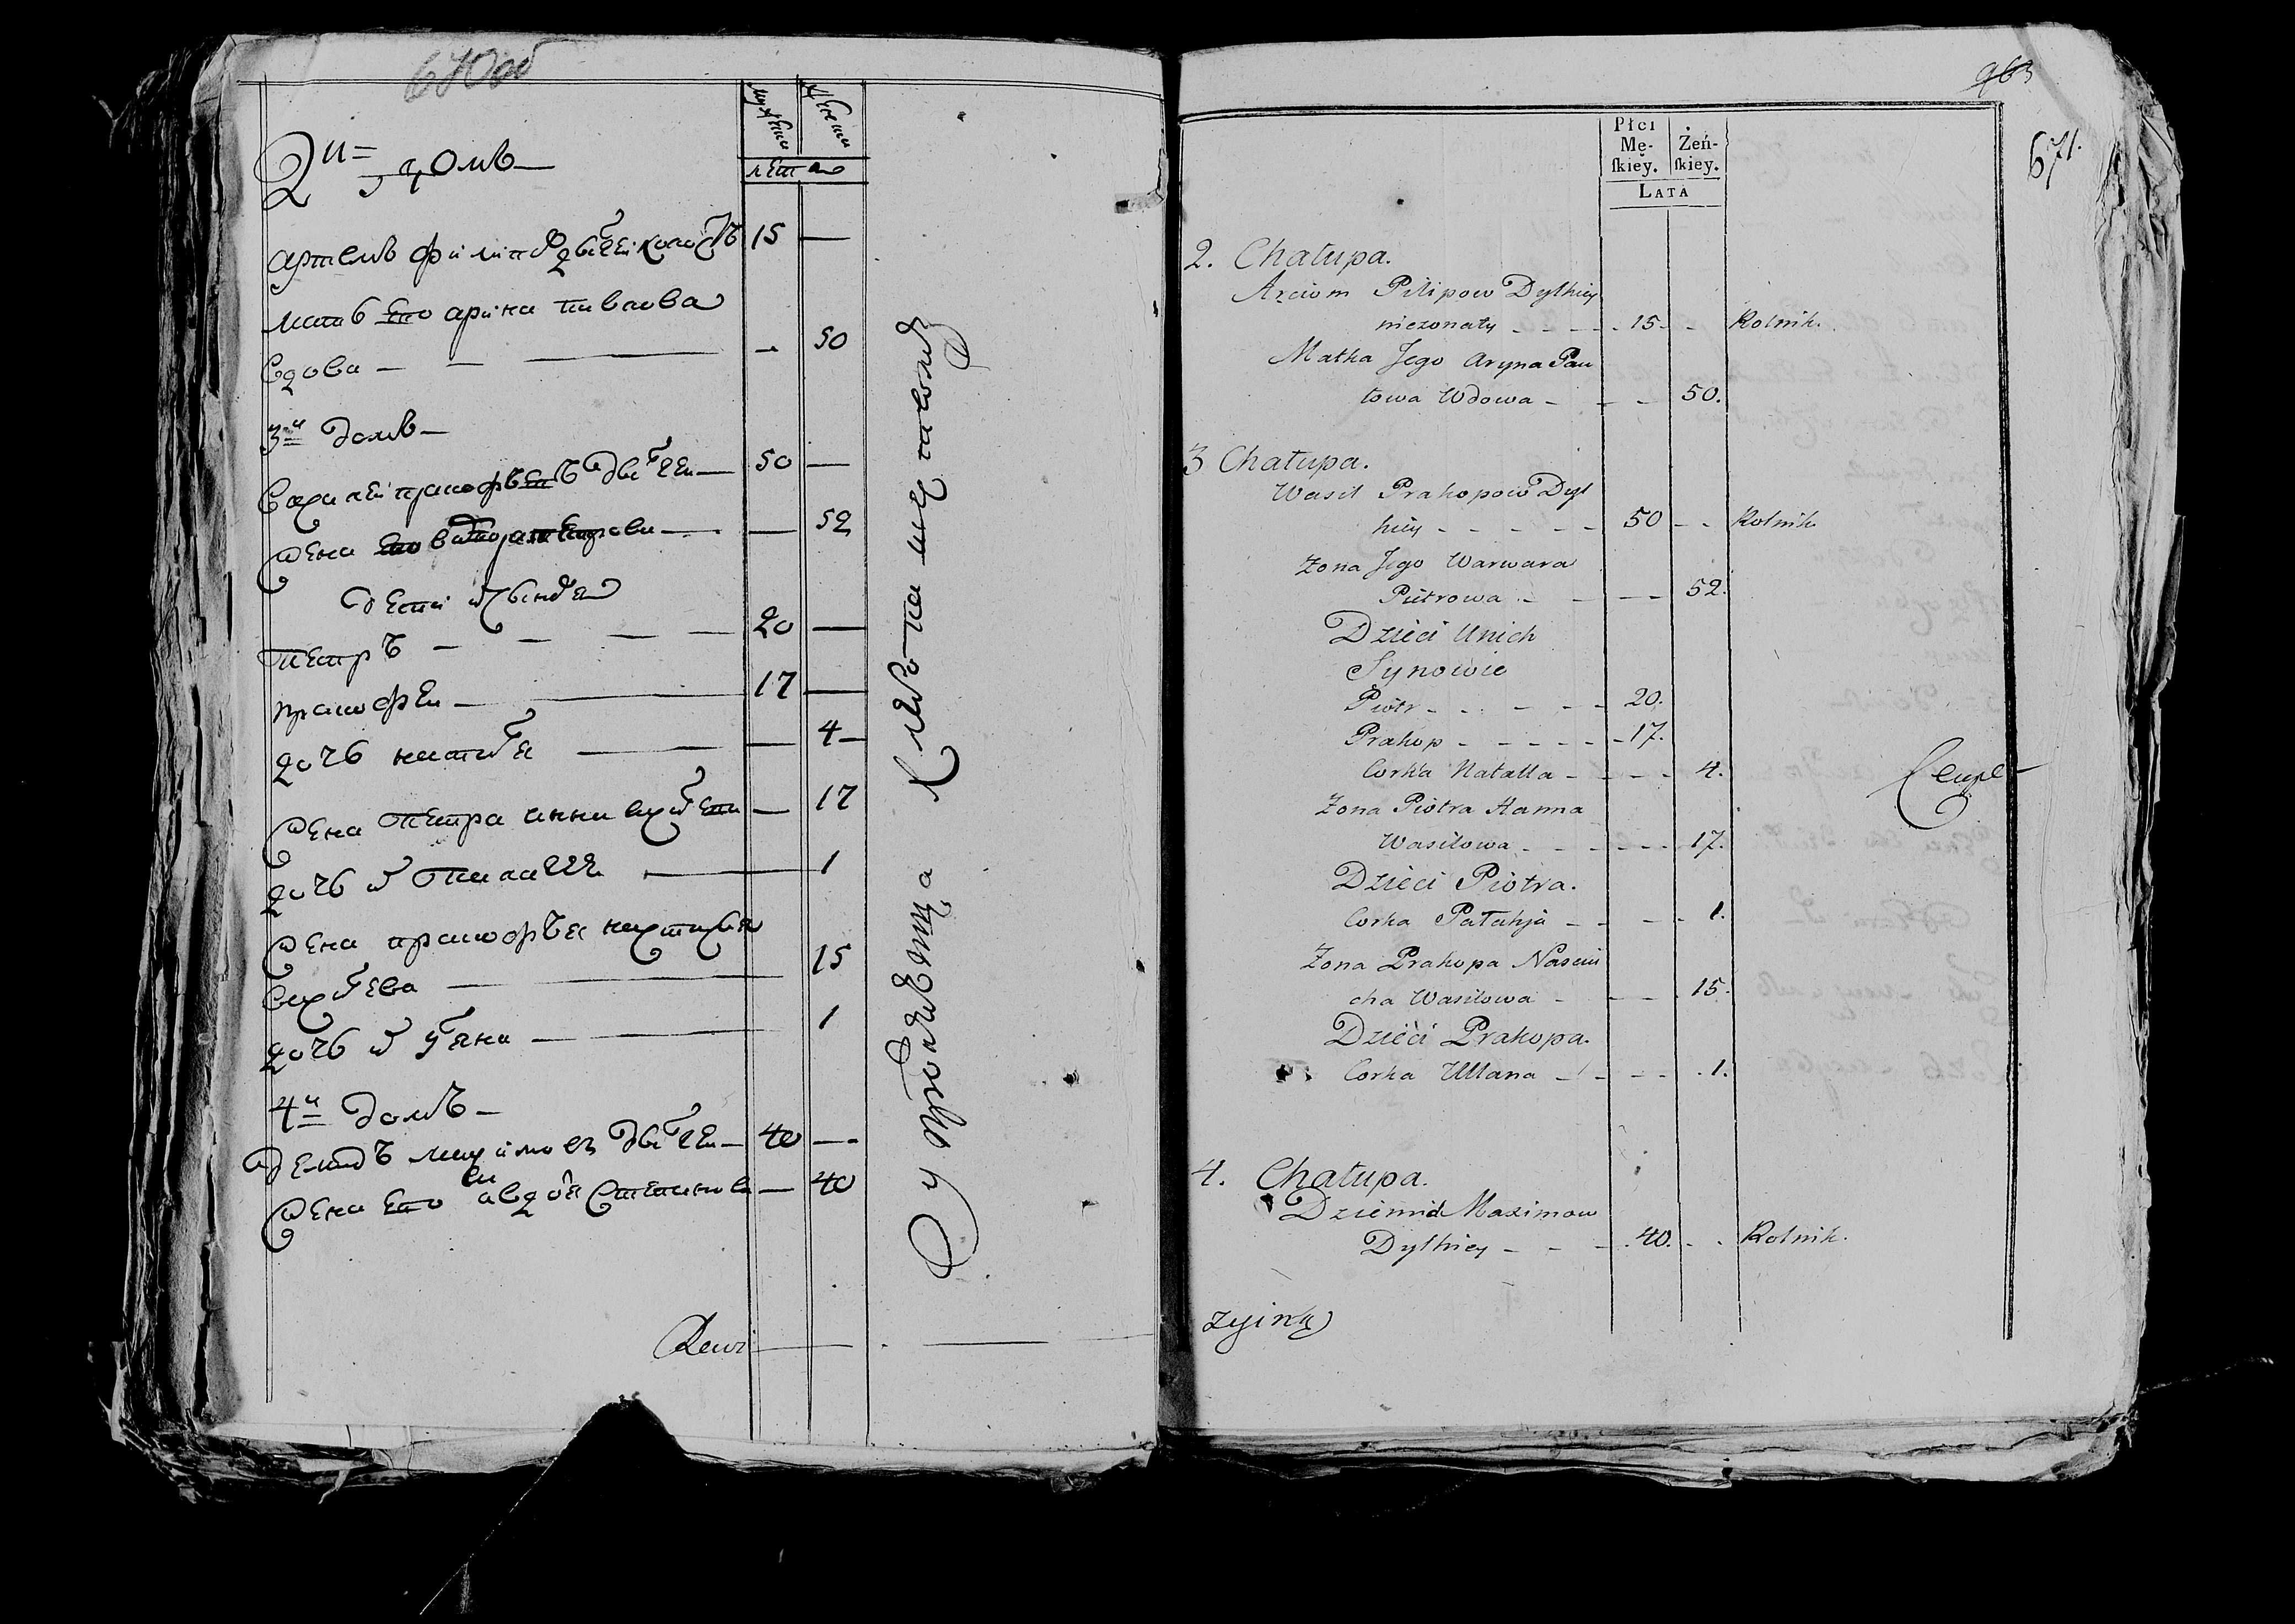 670об
мужеска
женска
лета
2й домъ
артемъ филиповъ дылгей холостъ 15
мать его арина павлова
вдова 50
3й домъ
василей прокофьевъ дылгей 50
жена его варвара петрова 52
дети
петръ 20
прокофей 17
дочь наталья 4
жена петра анна васильева 17
дочь палагея 1
жена прокофья настасья
васильева 15
дочь ульяна 1
4й домъ
демидъ максимовъ дылгей 40
жена его авдотья степанова 40
Rewi
963
671.
Płci Mę-skiey.
Żeń-skiey.
LATA
2. Chałupa.
Arciom Pilipow Dylhiey
niezonaty 15 Rolnik.
Matka Jego Aryna Paw
łowa Wdowa 50.
3 Chałupa.
Wasil Prakopow Dyl
hiey 50 Rolnik
Zona Jego Warwara
Piotrowa 52.
Dzieci Unich
Synowie
Piotr 20.
Prakop 17.
Corka Natalla 4.
Zona Piotra Hanna
Wasilowa 17.
Dzieci Piotra.
Corka Pałahja 1.
Zona Prakopa Nasciu
cha Wasilowa 15.
Dzieci Prakopa.
Corka Ullana 1.
4. Chałupa.
Dziemid Maximow
Dylhiey 40. Rolnik.
zyinky